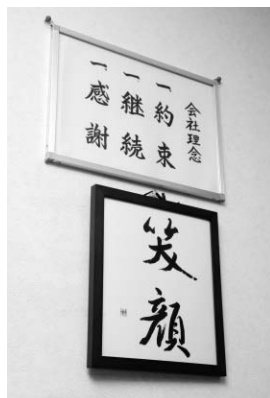 会社理念
一約束
一継続
一感謝
笑顔